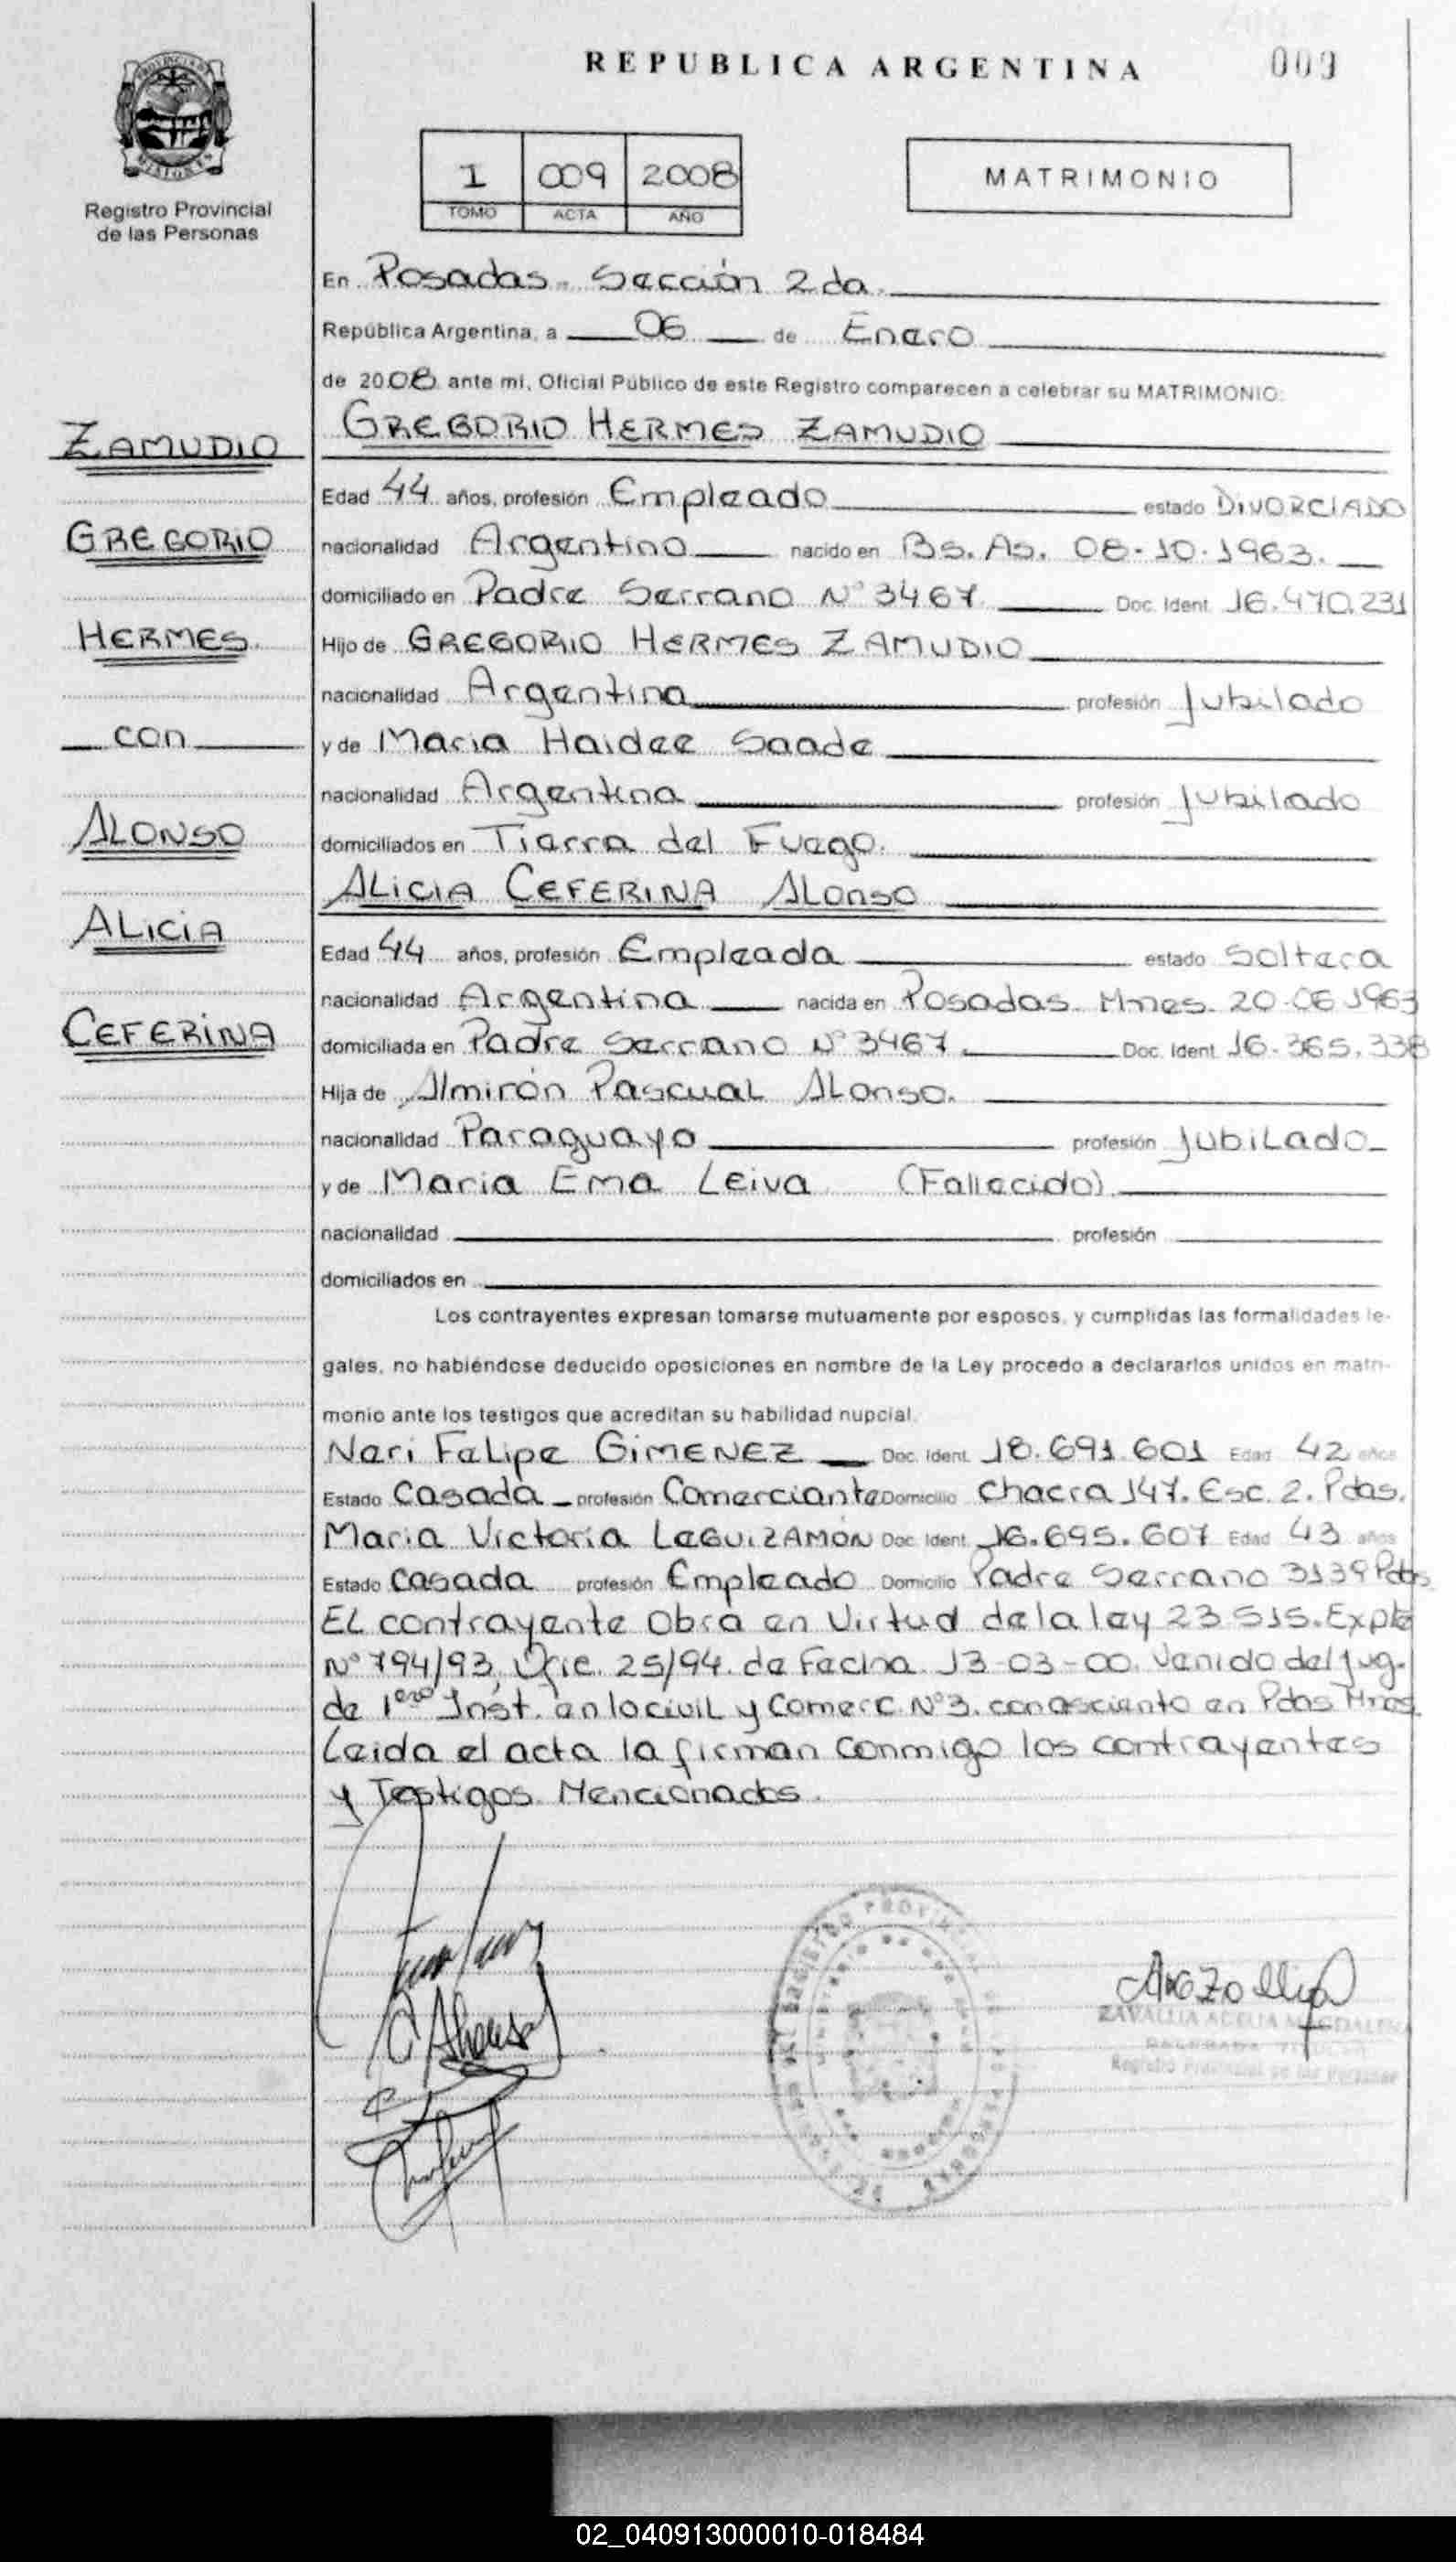 REPUBLICA ARGENTINA
009
Registro Provincial
de las Personas
1 009 2008
TOMO ACTA AÑO
MATRIMONIO
En Posadas - Sección 2da.
República Argentina, a 06 de Enero
de 2008 ante mi, Oficial Público de este Registro comparecen a celebrar su MATRIMONIO:
ZAMUDIO
GREGORIO
HERMES
con
ALONSO
ALICIA
CEFERINA
GREGORIO HERMES ZAMUDIO
Edad 44 años, profesión Empleado estado DIVORCIADO
nacionalidad Argentino nacido en Bs. As. 08-10-1963.
domiciliado en Padre Serrano N° 3467 Doc. Ident. 16.470.231
Hijo de GREGORIO HERMES ZAMUDIO
nacionalidad Argentina profesión Jubilado
y de Maria Haidee Saade
nacionalidad Argentina profesión Jubilado
domiciliados en Tierra del Fuego.
ALICIA CEFERINA ALONSO
Edad 44 años, profesión Empleada estado Soltera
nacionalidad Argentina nacida en Posadas Mnes 20-06 1963
domiciliada en Padre Serrano N° 3467 Doc. Ident. 16.365.338
Hija de Almirón Pascual ALonso.
nacionalidad Paraguayo profesión JubiLado
y de Maria Ema Leiva (Fallecido)
nacionalidad profesión
domiciliados en
Los contrayentes expresan tomarse mutuamente por esposos, y cumplidas las formalidades le-
gales, no habiéndose deducido oposiciones en nombre de la Ley procedo a declararlos unidos en matri-
monio ante los testigos que acreditan su habilidad nupcial.
Neri FeLipe GIMENEZ Doc. Ident. 18.691.601 Edad 42 años
Estado Casada profesión Comerciante Domicilio Chacra 147. Esc. 2. Pdas.
Maria Victoria LEGUIZAMÓN Doc. Ident. 16.695.607 Edad 43 años
Estado Casada profesión Empleado Domicilio Padre Serrano 3139 Pdas
EL contrayente Obra en Virtud de la ley 23.515. Expte
N° 794/93, 25/94. de Fecha 13-03-00. Venido del Jug.
de 1era Inst. en lo civiL y Comerc. N°3. con asciento en Pdas Mnes
Leida el acta la firman conmigo los contrayentes
y Testigos Mencionados.
ZAVALLIA MAGDALENA
Registro Provincial de las Personas
02_040913000010-018484